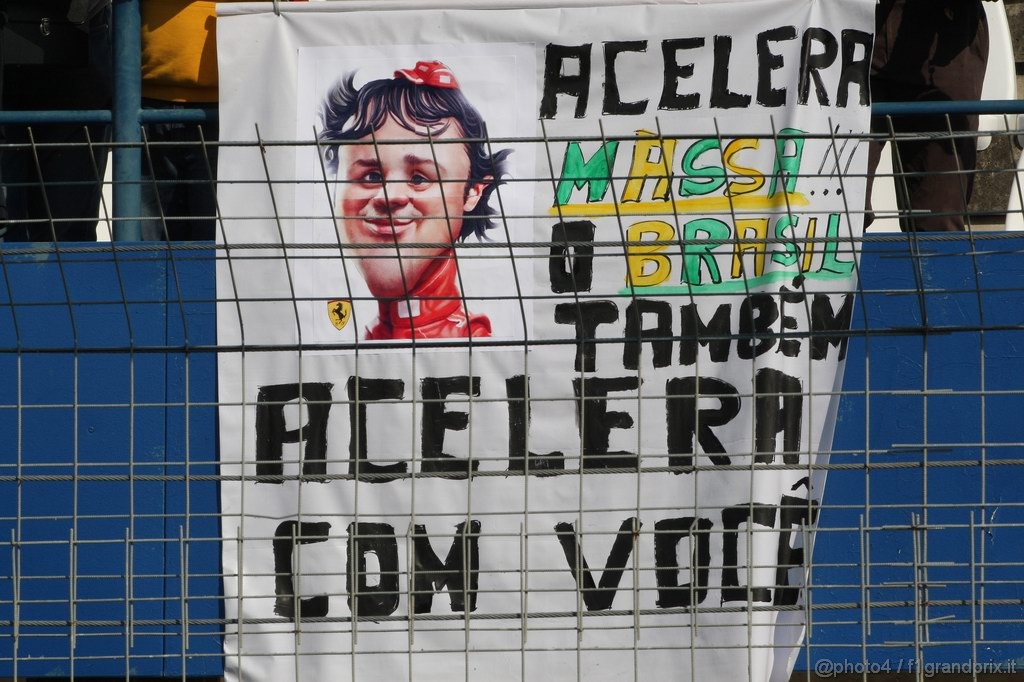 ACELERA
MASSA!!!
O BRASIL
TAMBÉM
ACELERA
COM VOCÊ
@photo4 / f1grandprix.it